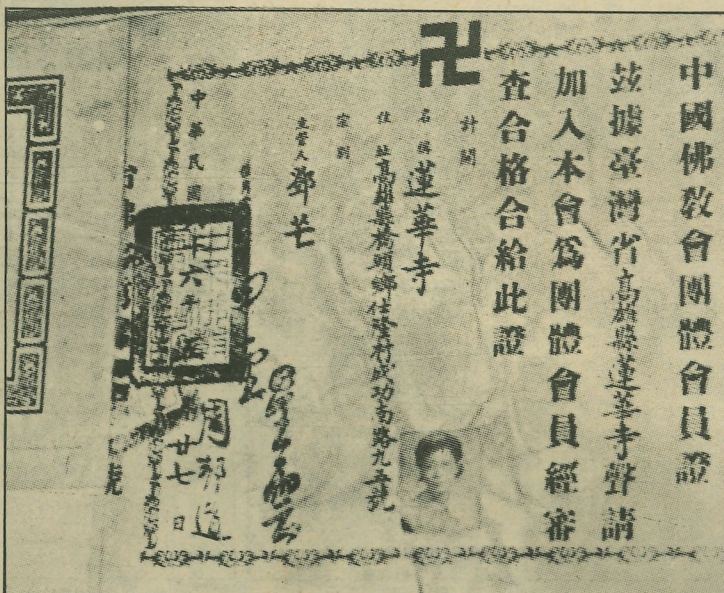 中國佛教會團體會員證
玆據臺灣省高雄縣蓮華寺聲請
加入本會爲團體會員經審
查合格合給此證
計開
名稱蓮華寺
住址高雄縣橋頭鄉仕隆村成功南路九五號
宗別
主管人鄧芒
星雲
中華民國十六年
廿七日